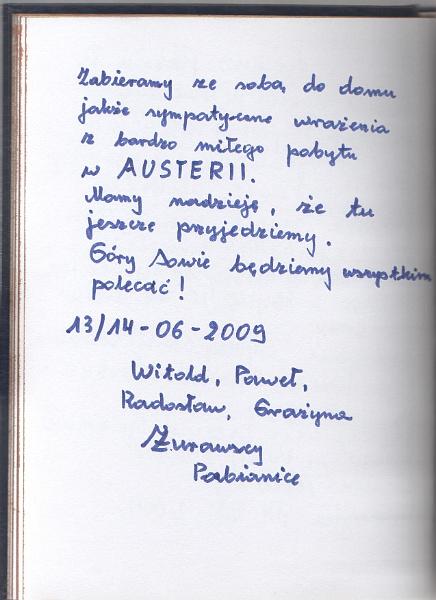 Zabieramy ze sobą do domu
jakże sympatyczne wrażenia
z bardzo miłego pobytu
w AUSTERII.
Mamy nadzieję, że tu
jeszcze przyjedziemy.
Góry Sowie będziemy wszystkim
polecać!
13/14-06-2009
Witold, Paweł,
Radosław, Grażyna
Żurawscy
Pabianice